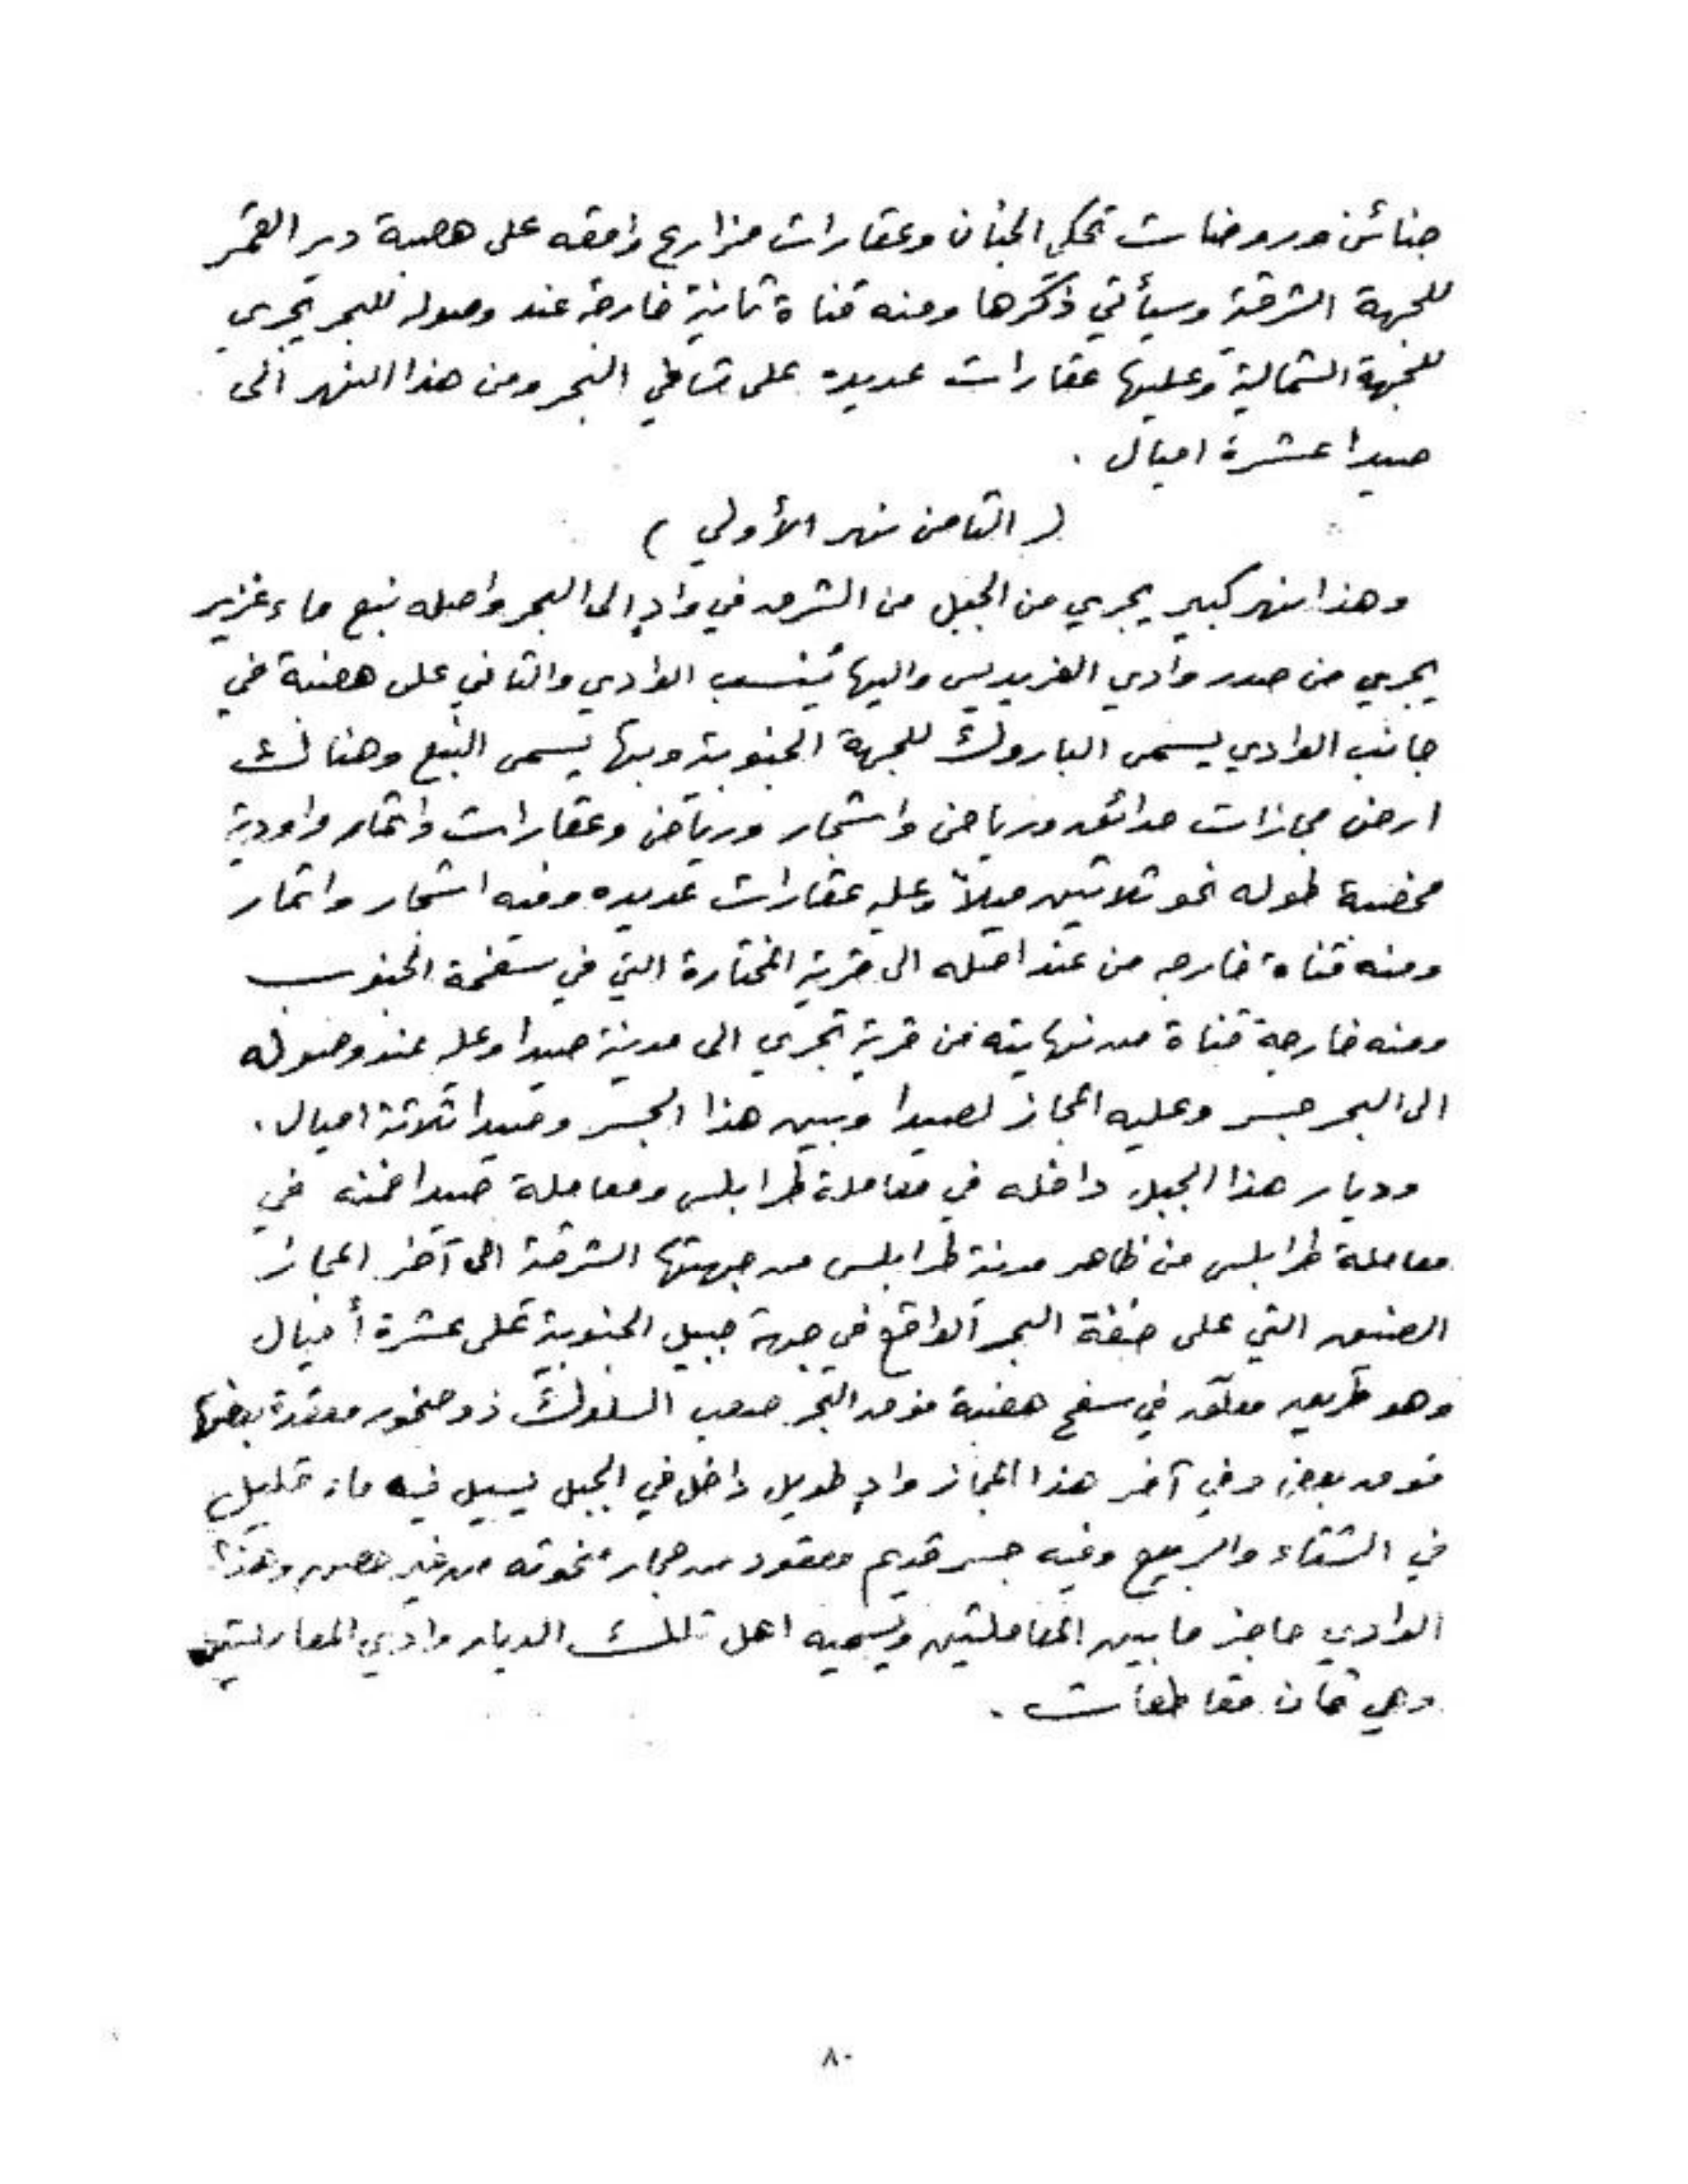 جنائن وروضات تحكي الجنان وعقارات مزارع واقعه على هضبة دير القمر
للجهة الشرقية وسيأتي ذكرها ومنه قناة ثانية خارجة عند وصوله للبحر تجري
للجهة الشمالية وعليها عقارات عديدة على شاطي البحر ومن هذا النهر الى
صيدا عشرة اميال .
( الثامن نهر الأولي )
وهذا نهر كبير يجري من الجبل من الشرق في وادٍ إلى البحر واصله نبع ماء غزير
يجري من صدر وادي الفريديس واليها يُنسب الوادي والثاني على هضبة في
جانب الوادي يسمى الباروك للجهة الجنوبية وبها يسمى النبع وهناك
ارض مجازات حدائق ورياض واشجار ورياض وعقارات واثمار واودية
مخضبة طوله نحو ثلاثين ميلاً وعليه عقارات عديده وفيه اشجار واثمار
ومنه قناة خارجه من عند اصله الى قرية المختارة التي في سفحة الجنوب
ومنه خارجة قناة من نهايته من قرية تجري الى مدينة صيدا وعليه عند وصوله
الى البحر جسر وعليه المجاز لصيدا وبين هذا الجسر وصيدا ثلاثة اميال .
وديار هذا الجبل داخله في معاملة طرابلس ومعاملة صيدا فمنه في
معاملة طرابلس من ظاهر مدينة طرابلس من جهتها الشرقية الى آخر المجاز
الضيق التي على ضفة البحر الواقع في جهة جبيل الجنوبية على عشرة أميال
وهو طريق معلّق في سفح هضبة فوق البحر صعب السلوك ذو صخور معقدة بعضها
فوق بعض وفي آخر هذا المجاز وادٍ طويل داخل في الجبل يسيل فيه ماء قليل
في الشتاء والربيع وفيه جسر قديم معقود من حجار منحوته من غير وهذا
الوادي حاجز ما بين المعاملتين ويسميه اهل تلك الديار وادي المعاملتين
وهي ثمان مقاطعات .
٨٠